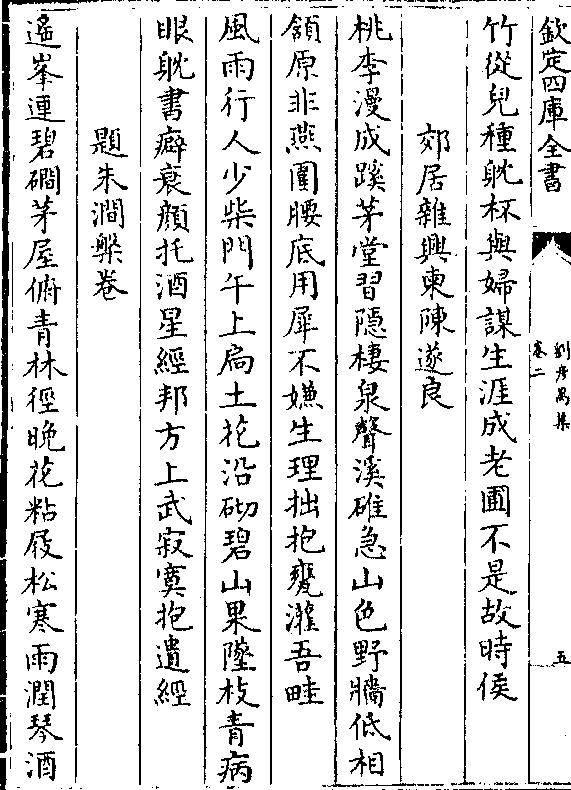 欽定四庫全書
劉彥昺集
卷二
五
竹從兒種躭杯與婦謀生涯成老圃不是故時侯
郊居雜興柬陳遂良
桃李漫成蹊茅堂習隱棲泉聲溪碓急山色野牆低相
領原非燕圍腰底用犀不嫌生理拙抱甕灌吾畦
風雨行人少柴門午上扃土花沿砌碧山果墜枝青病
眼躭書癖衰顔托酒星經邦方上武寂寞抱遺經
題朱澗槃卷
遙峯連碧磵茅屋俯青林徑晚花粘屐松寒雨潤琴酒